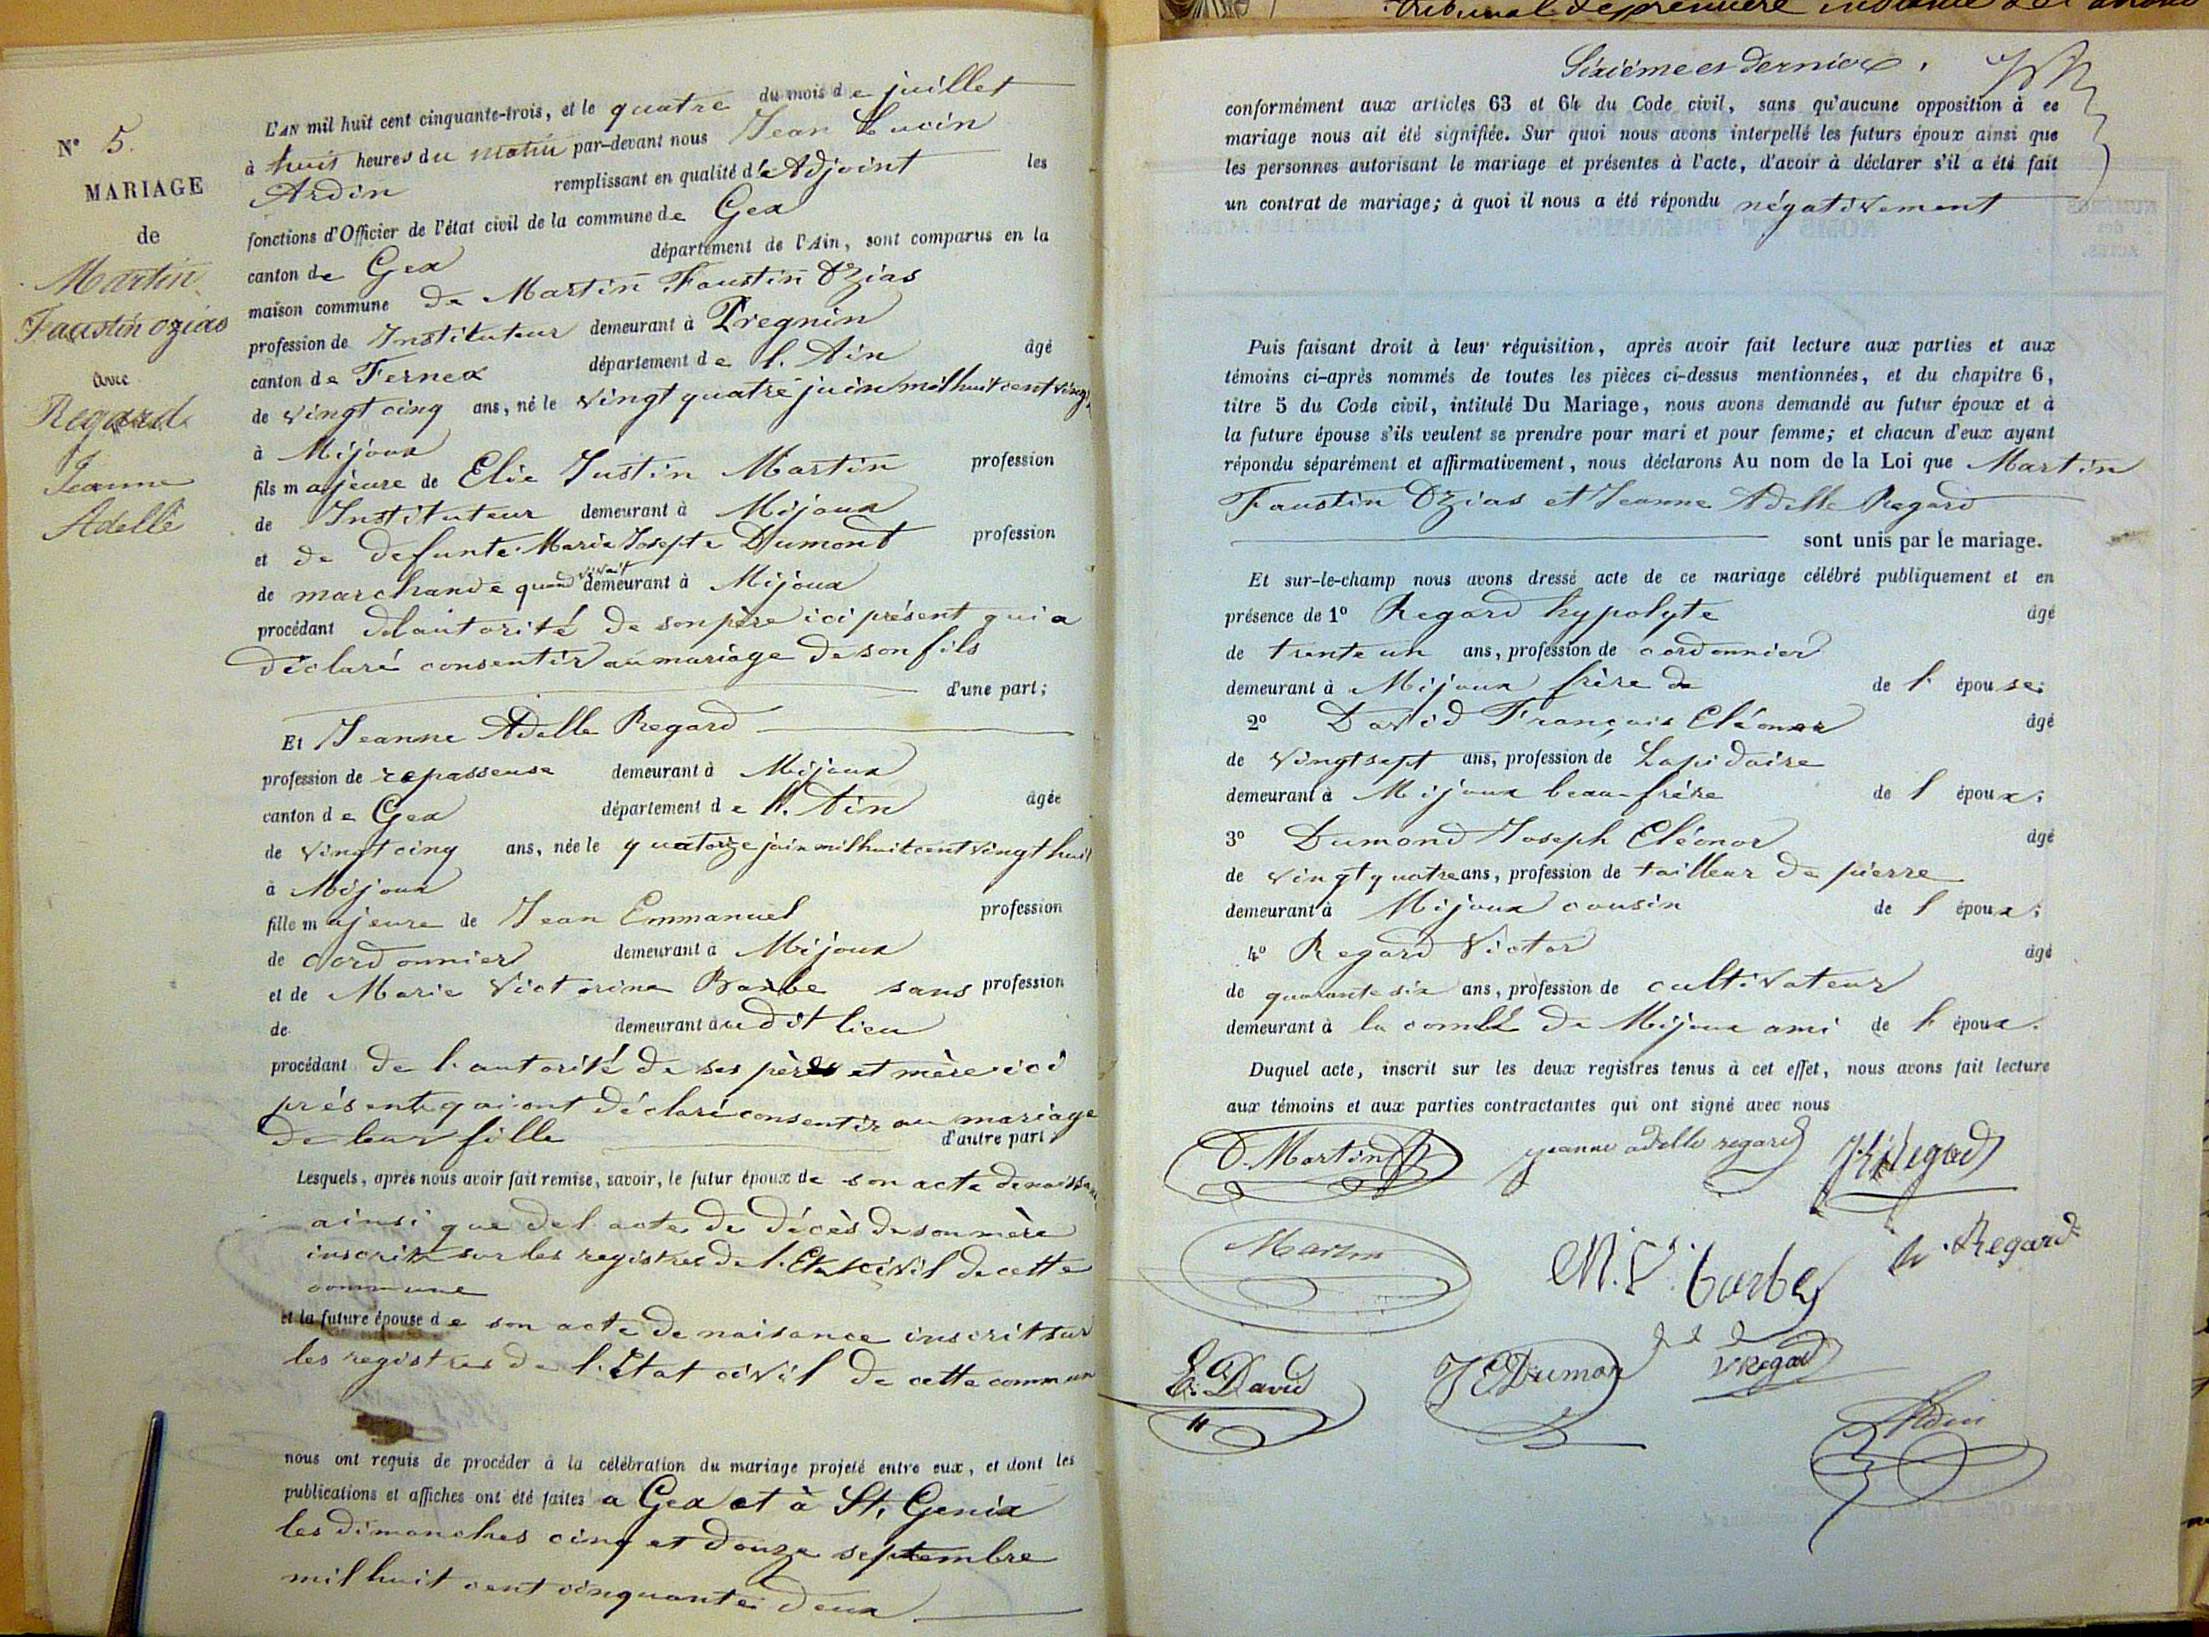 N° 5.
MARIAGE
de
Martin
Faustin ozias
avec
Regard
Jeanne
Adelle
L'AN mil huit cent cinquante-trois, et le quatre du mois de juillet
à huit heures du matin par-devant nous Jean Lucin
Ardin remplissant en qualité d'Adjoint les
fonctions d'Officier de l'état civil de la commune de Gex
canton de Gex département de l'Ain, sont comparus en la
maison commune de Martin Faustin Ozias
profession de Instituteur demeurant à Pregnin
canton de Fernex département de l'Ain âgé
de vingt cinq ans, né le vingt quatre juin mil huit cent vingt
à Mijoux
fils majeure de Elie Justin Martin profession
de Instituteur demeurant à Mijoux
et de defunte Marie Josepte Dumont profession
de marchande quand vivait demeurant à Mijoux
procédant del'autorité de son père ici présent qui a
déclaré consentir au mariage de son fils
d'une part;
Et Jeanne Adelle Regard
profession de repasseuse demeurant à Mijoux
canton de Gex département de l'Ain âgée
de vingt cinq ans, née le quatorze juin mil huit cent vingt huit
à Mijoux
fille majeure de Jean Emmanuel profession
de cordonnier demeurant à Mijoux
et de Marie Victorine Barbe sans profession
de demeurant audit lieu
procédant de l'autorité de ses pères et mère ici
présent qui ont déclaré consentir au mariage
de leur fille d'autre part
Lesquels, après nous avoir fait remise, savoir, le futur époux de son acte de naissance
ainsi que del'acte de décès de son mère
inscrite sur les registres de l'Etat civil de cette
commune
et la future épouse de son acte de naisance inscrit sur
les registres de l'Etat civil de cette commun
nous ont requis de procéder à la célébration du mariage projeté entre eux, et dont les
publications et affiches ont été faites a Gex et à St. Genix
les dimanches cinq et douze septembre
mil huit cent cinquante deux
tribunal de première instance de
Sixième et dernier.
conformément aux articles 63 et 64 du Code civil, sans qu'aucune opposition à ce
mariage nous ait été signifiée. Sur quoi nous avons interpellé les futurs époux ainsi que
les personnes autorisant le mariage et présentes à l'acte, d'avoir à déclarer s'il a été fait
un contrat de mariage; à quoi il nous a été répondu négativement
Puis faisant droit à leur réquisition, après avoir fait lecture aux parties et aux
témoins ci-après nommés de toutes les pièces ci-dessus mentionnées, et du chapitre 6,
titre 5 du Code civil, intitulé Du Mariage, nous avons demandé au futur époux et à
la future épouse s'ils veulent se prendre pour mari et pour femme; et chacun d'eux ayant
répondu séparément et affirmativement, nous déclarons Au nom de la Loi que Martin
Faustin Ozias et Jeanne Adelle Regard
sont unis par le mariage.
Et sur-le-champ nous avons dressé acte de ce mariage célébré publiquement et en
présence de 1° Regard hypolyte âgé
de trente un ans, profession de cordonnier
demeurant à Mijoux frère de de l'épouse;
2° David François Eléonor âgé
de vingt sept ans, profession de Lapidaire
demeurant à Mijoux beau-frère de l'époux;
3° Dumond Joseph Eléonor âgé
de vingt quatre ans, profession de tailleur de pierre
demeurant à Mijoux cousin de l'époux;
4° Regard Victor âgé
de quarante six ans, profession de cultivateur
demeurant à la comble de Mijoux ami de l'époux.
Duquel acte, inscrit sur les deux registres tenus à cet effet, nous avons fait lecture
aux témoins et aux parties contractantes qui ont signé avec nous
O. Martin jeanne adelle regard Regad
Martin M.V. barbe h. Regard
E. David J E Dumon V Regad
Ardin